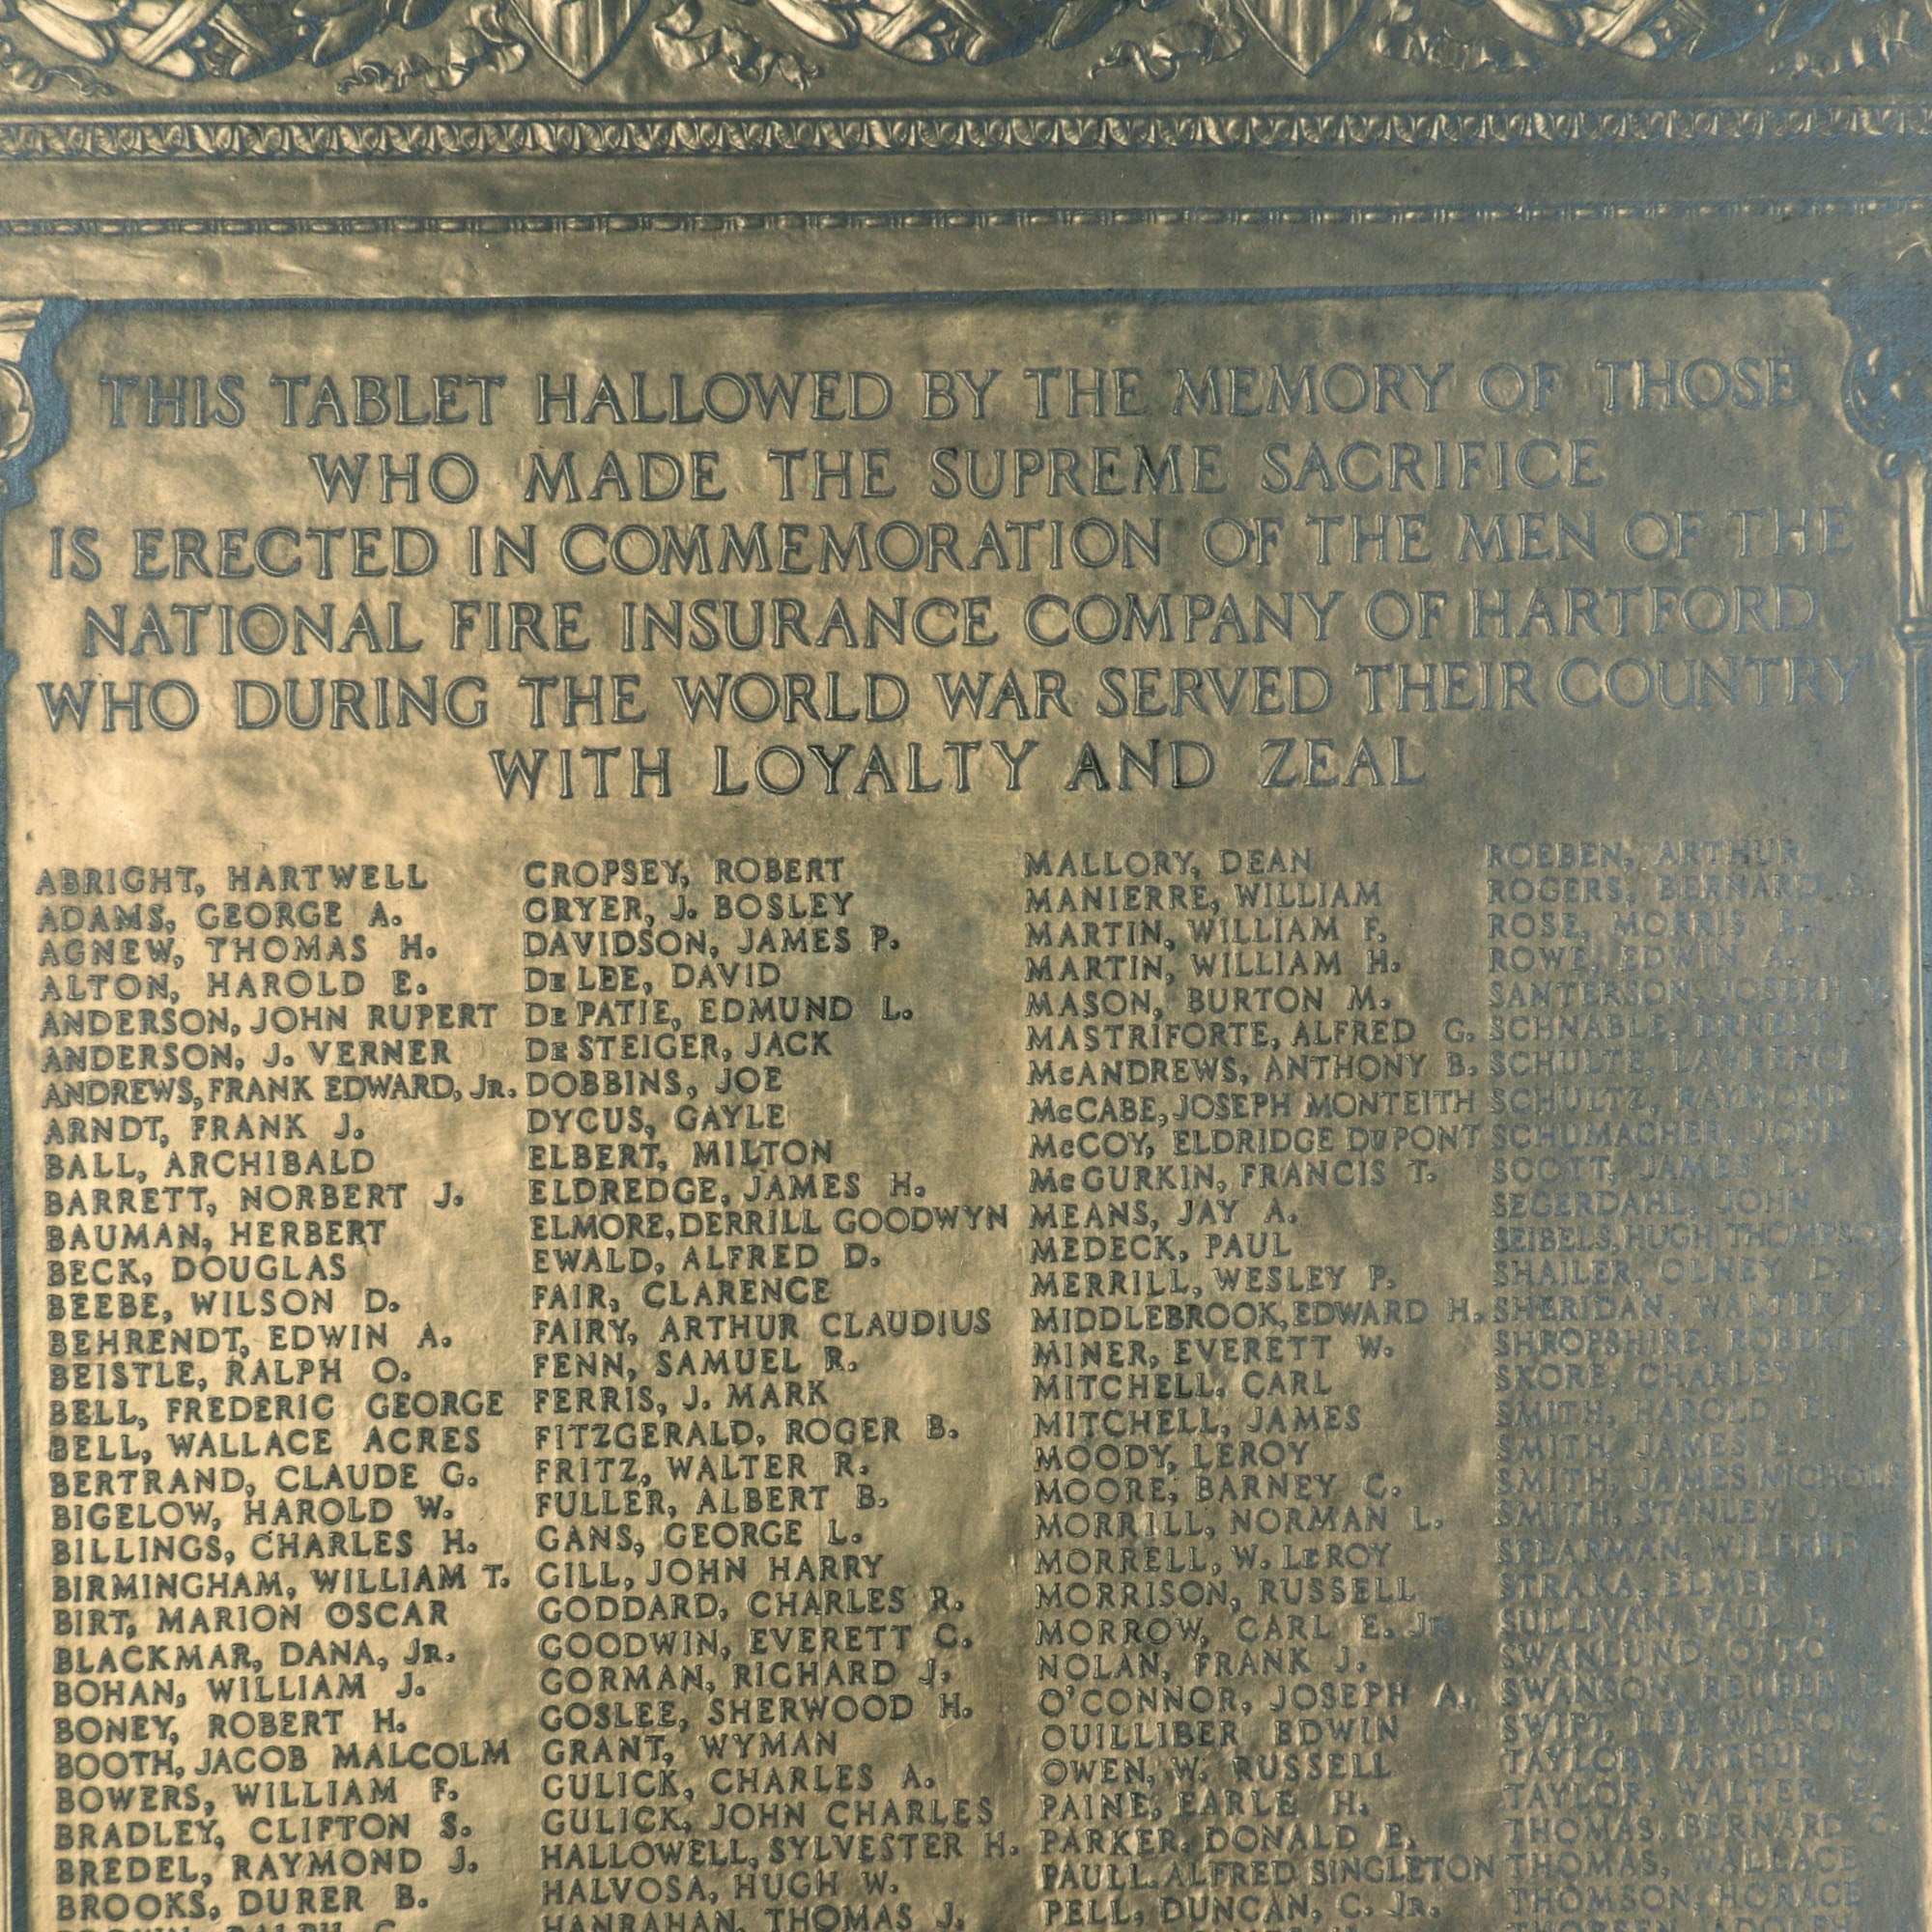 THIS TABLET HALLOWED BY THE MEMORY OF THOSE
WHO MADE THE SUPREME SACRIFICE
IS ERECTED IN COMMEMORATION OF THE MEN OF THE
NATIONAL FIRE INSURANCE COMPANY OF HARTFORD
WHO DURING THE WORLD WAR SERVED THEIR COUNTRY
WITH LOYALTY AND ZEAL
ABRIGHT, HARTWELL
ADAMS, GEORGE A.
AGNEW, THOMAS H.
ALTON, HAROLD E.
ANDERSON, JOHN RUPERT
ANDERSON, J. VERNER
ANDREWS, FRANK EDWARD, JR.
ARNDT, FRANK J.
BALL, ARCHIBALD
BARRETT, NORBERT J.
BAUMAN, HERBERT
BECK, DOUGLAS
BEEBE, WILSON D.
BEHRENDT, EDWIN A.
BEISTLE, RALPH O.
BELL, FREDERIC GEORGE
BELL, WALLACE ACRES
BERTRAND, CLAUDE G.
BIGELOW, HAROLD W.
BILLINGS, CHARLES H.
BIRMINGHAM, WILLIAM T.
BIRT, MARION OSCAR
BLACKMAR, DANA, JR.
BOHAN, WILLIAM J.
BONEY, ROBERT H.
BOOTH, JACOB MALCOLM
BOWERS, WILLIAM F.
BRADLEY, CLIFTON S.
BREDEL, RAYMOND J.
BROOKS, DURER B.
CROPSEY, ROBERT
CRYER, J. BOSLEY
DAVIDSON, JAMES P.
DE LEE, DAVID
DE PATIE, EDMUND L.
DE STEIGER, JACK
DOBBINS, JOE
DYCUS, GAYLE
ELBERT, MILTON
ELDREDGE, JAMES H.
ELMORE, DERRILL GOODWYN
EWALD, ALFRED D.
FAIR, CLARENCE
FAIRY, ARTHUR CLAUDIUS
FENN, SAMUEL R.
FERRIS, J. MARK
FITZGERALD, ROGER B.
FRITZ, WALTER R.
FULLER, ALBERT B.
GANS, GEORGE L.
GILL, JOHN HARRY
GODDARD, CHARLES R.
GOODWIN, EVERETT C.
GORMAN, RICHARD J.
GOSLEE, SHERWOOD H.
GRANT, WYMAN
GULICK, CHARLES A.
GULICK, JOHN CHARLES
HALLOWELL, SYLVESTER H.
HALVOSA, HUGH W.
HANRAHAN, THOMAS J.
MALLORY, DEAN
MANIERRE, WILLIAM
MARTIN, WILLIAM F.
MARTIN, WILLIAM H.
MASON, BURTON M.
MASTRIFORTE, ALFRED G.
MCANDREWS, ANTHONY B.
MCCABE, JOSEPH MONTEITH
MCCOY, ELDRIDGE DUPONT
MCGURKIN, FRANCIS T.
MEANS, JAY A.
MEDECK, PAUL
MERRILL, WESLEY P.
MIDDLEBROOK, EDWARD H.
MINER, EVERETT W.
MITCHELL, CARL
MITCHELL, JAMES
MOODY, LEROY
MOORE, BARNEY C.
MORRILL, NORMAN L.
MORRELL, W. LEROY
MORRISON, RUSSELL
MORROW, CARL E. JR
NOLAN, FRANK J.
O'CONNOR, JOSEPH A.
OUILLIBER EDWIN
OWEN, W. RUSSELL
PAINE, EARLE H.
PARKER, DONALD E.
PAULL, ALFRED SINGLETON
PELL, DUNCAN, C. JR.
ROEBEN, ARTHUR
ROGERS, BERNARD S.
ROSE, MORRIS
ROWE, EDWIN A.
SANTERSON, JOSEPH V.
SCHNABLE, ERNEST
SCHULTE, LAWRENCE
SCHULTZ, RAYMOND
SCHUMACHER, JOHN
SCOTT, JAMES L.
SEGERDAHL, JOHN
SEIBELS, HUGH THOMPSON
SHAILER, OLNEY D.
SHERIDAN, WALTER
SHROPSHIRE, ROBERT
SKORE, CHARLES
SMITH, HAROLD
SMITH, JAMES
SMITH, JAMES NICHOLS
SMITH, STANLEY J.
SPEARMAN, WILFRED
STRAKA, ELMER
SULLIVAN, PAUL
SWANLUND, OTTO
SWANSON, REUBEN
SWIFT, LEE WILSON
TAYLOR, ARTHUR
TAYLOR, WALTER
THOMAS, BERNARD C.
THOMAS, WALLACE
THOMSON, HORACE